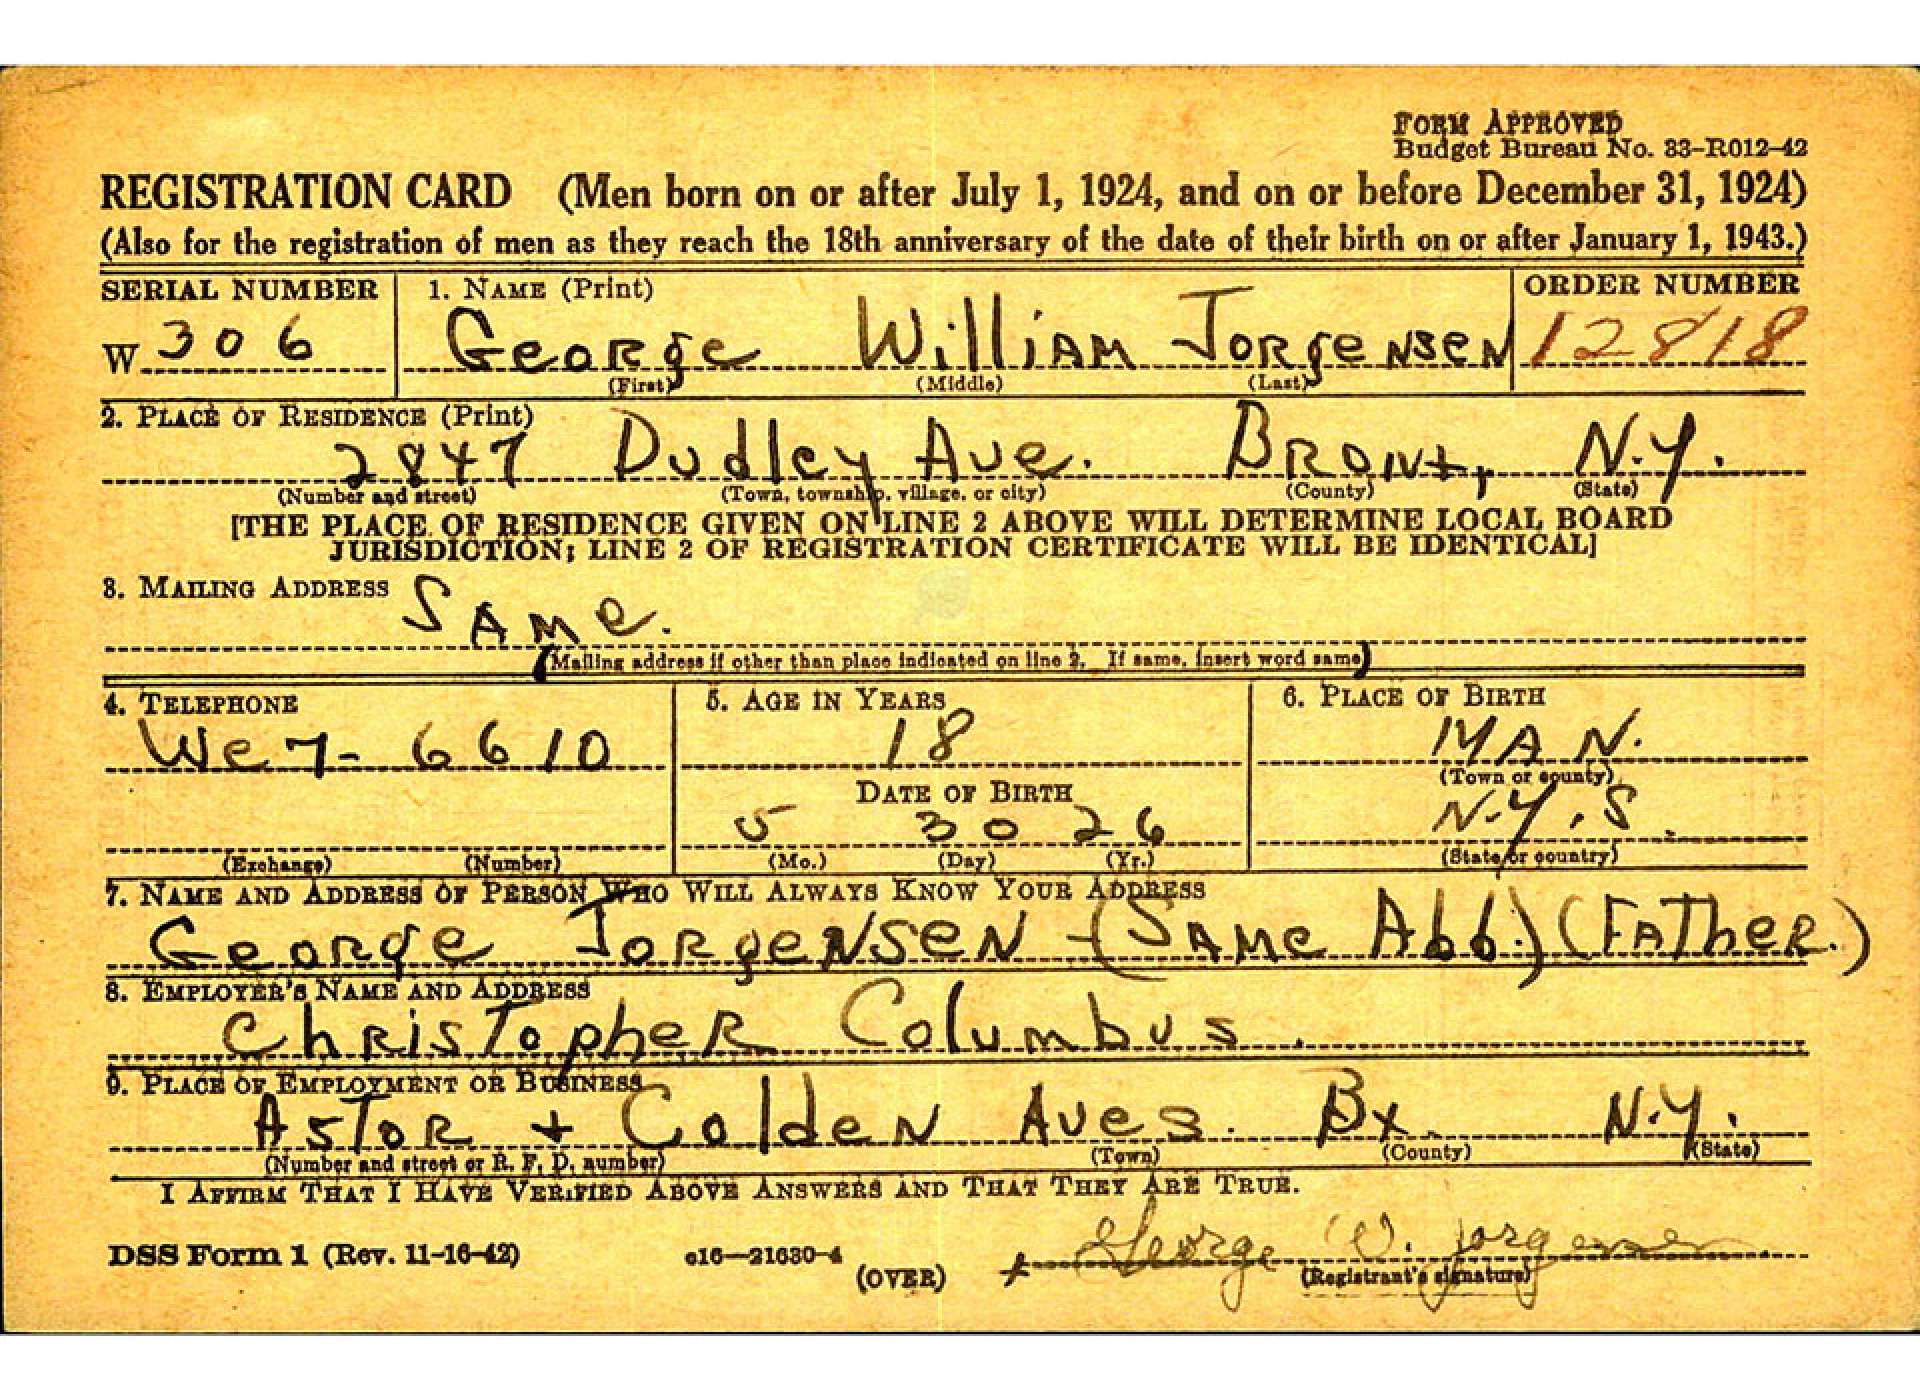 FORM APPROVED
Budget Bureau No. 33-R012-42
REGISTRATION CARD (Men born on or after July 1, 1924, and on or before December 31, 1924)
(Also for the registration of men as they reach the 18th anniversary of the date of their birth on or after January 1, 1943.)
SERIAL NUMBER 1. NAME (Print) ORDER NUMBER
W 306 George William Jorgensen 12818
(First) (Middle) (Last)
2. PLACE OF RESIDENCE (Print)
2847 Dudley Ave. Bronx, N.Y.
(Number and street) (Town, township, village, or city) (County) (State)
[THE PLACE OF RESIDENCE GIVEN ON LINE 2 ABOVE WILL DETERMINE LOCAL BOARD
JURISDICTION; LINE 2 OF REGISTRATION CERTIFICATE WILL BE IDENTICAL]
3. MAILING ADDRESS
Same.
(Mailing address if other than place indicated on line 2. If same, insert word same)
4. TELEPHONE 5. AGE IN YEARS 6. PLACE OF BIRTH
We 7- 6610 18 MAN.
(Town or county)
DATE OF BIRTH
5 30 26 N.Y.S.
(Exchange) (Number) (Mo.) (Day) (Yr.) (State or country)
7. NAME AND ADDRESS OF PERSON WHO WILL ALWAYS KNOW YOUR ADDRESS
George Jorgensen - (Same Add.) (Father.)
8. EMPLOYER'S NAME AND ADDRESS
Christopher Columbus.
9. PLACE OF EMPLOYMENT OR BUSINESS
Astor + Colden Aves. Bx. N.Y.
(Number and street or R. F. D. number) (Town) (County) (State)
I AFFIRM THAT I HAVE VERIFIED ABOVE ANSWERS AND THAT THEY ARE TRUE.
George W. Jorgensen
DSS Form 1 (Rev. 11-16-42) c16—21630-4 (OVER) (Registrant's signature)